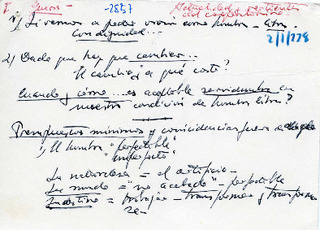 I. -2857 Actualidad y
2/1/778
1) Si vamos a poder vivir como hombre - libre.
con dignidad...
2) Dado que hay que cambiar...
El cambiar, a qué costo?
Cuando y cómo ... es aceptable servidumbre en
nuestra condición de hombre libre?
Presupuestos mínimos y coincidencias fuera de
1) El hombre "perfectible"
"imperfecto"
La naturaleza = el artificio -
La mundo = "no acabado" - perfectible
= trabajar - transformar y transformar
se -